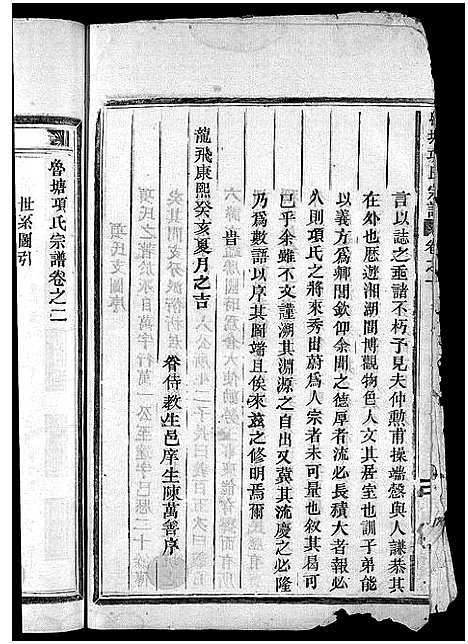 魯塘項氏宗譜卷之一
言以誌之垂諸不朽予見夫仲勲甫操端慤與人謙恭其
在庠也歷遊湘湖間博觀物色人文其居室也訓子弟能
以義方為鄉閭欽仰余聞之德厚者流必長積大者報必
久則項氏之將來秀出蔚為人宗者未可量也敘其曷可
已乎余雖不文謹溯其淵源之自出又冀其流慶之必隆
乃為數語以序其圖端且俟來茲之修明焉爾
昔
龍飛康熙癸亥夏月之吉
眷侍教生邑庠生陳萬善序
項氏支圖序
魯塘項氏宗譜卷之二
世系圖引